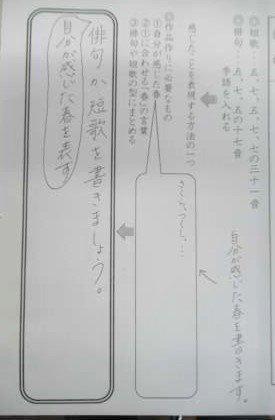 ◎短歌…五、七、五、七、七の三十一音
◎俳句…五、七、五の十七音
季語を入れる
自分が感じた春を書きます。
感じたことを表現する方法の一つ
◎作品作りに必要なもの
①自分が感じた春
②①に合わせる「春」の言葉
③俳句や短歌の型にまとめる
さくら、つくし、…
俳句か短歌を書きましょう。
自分が感じた春を表す